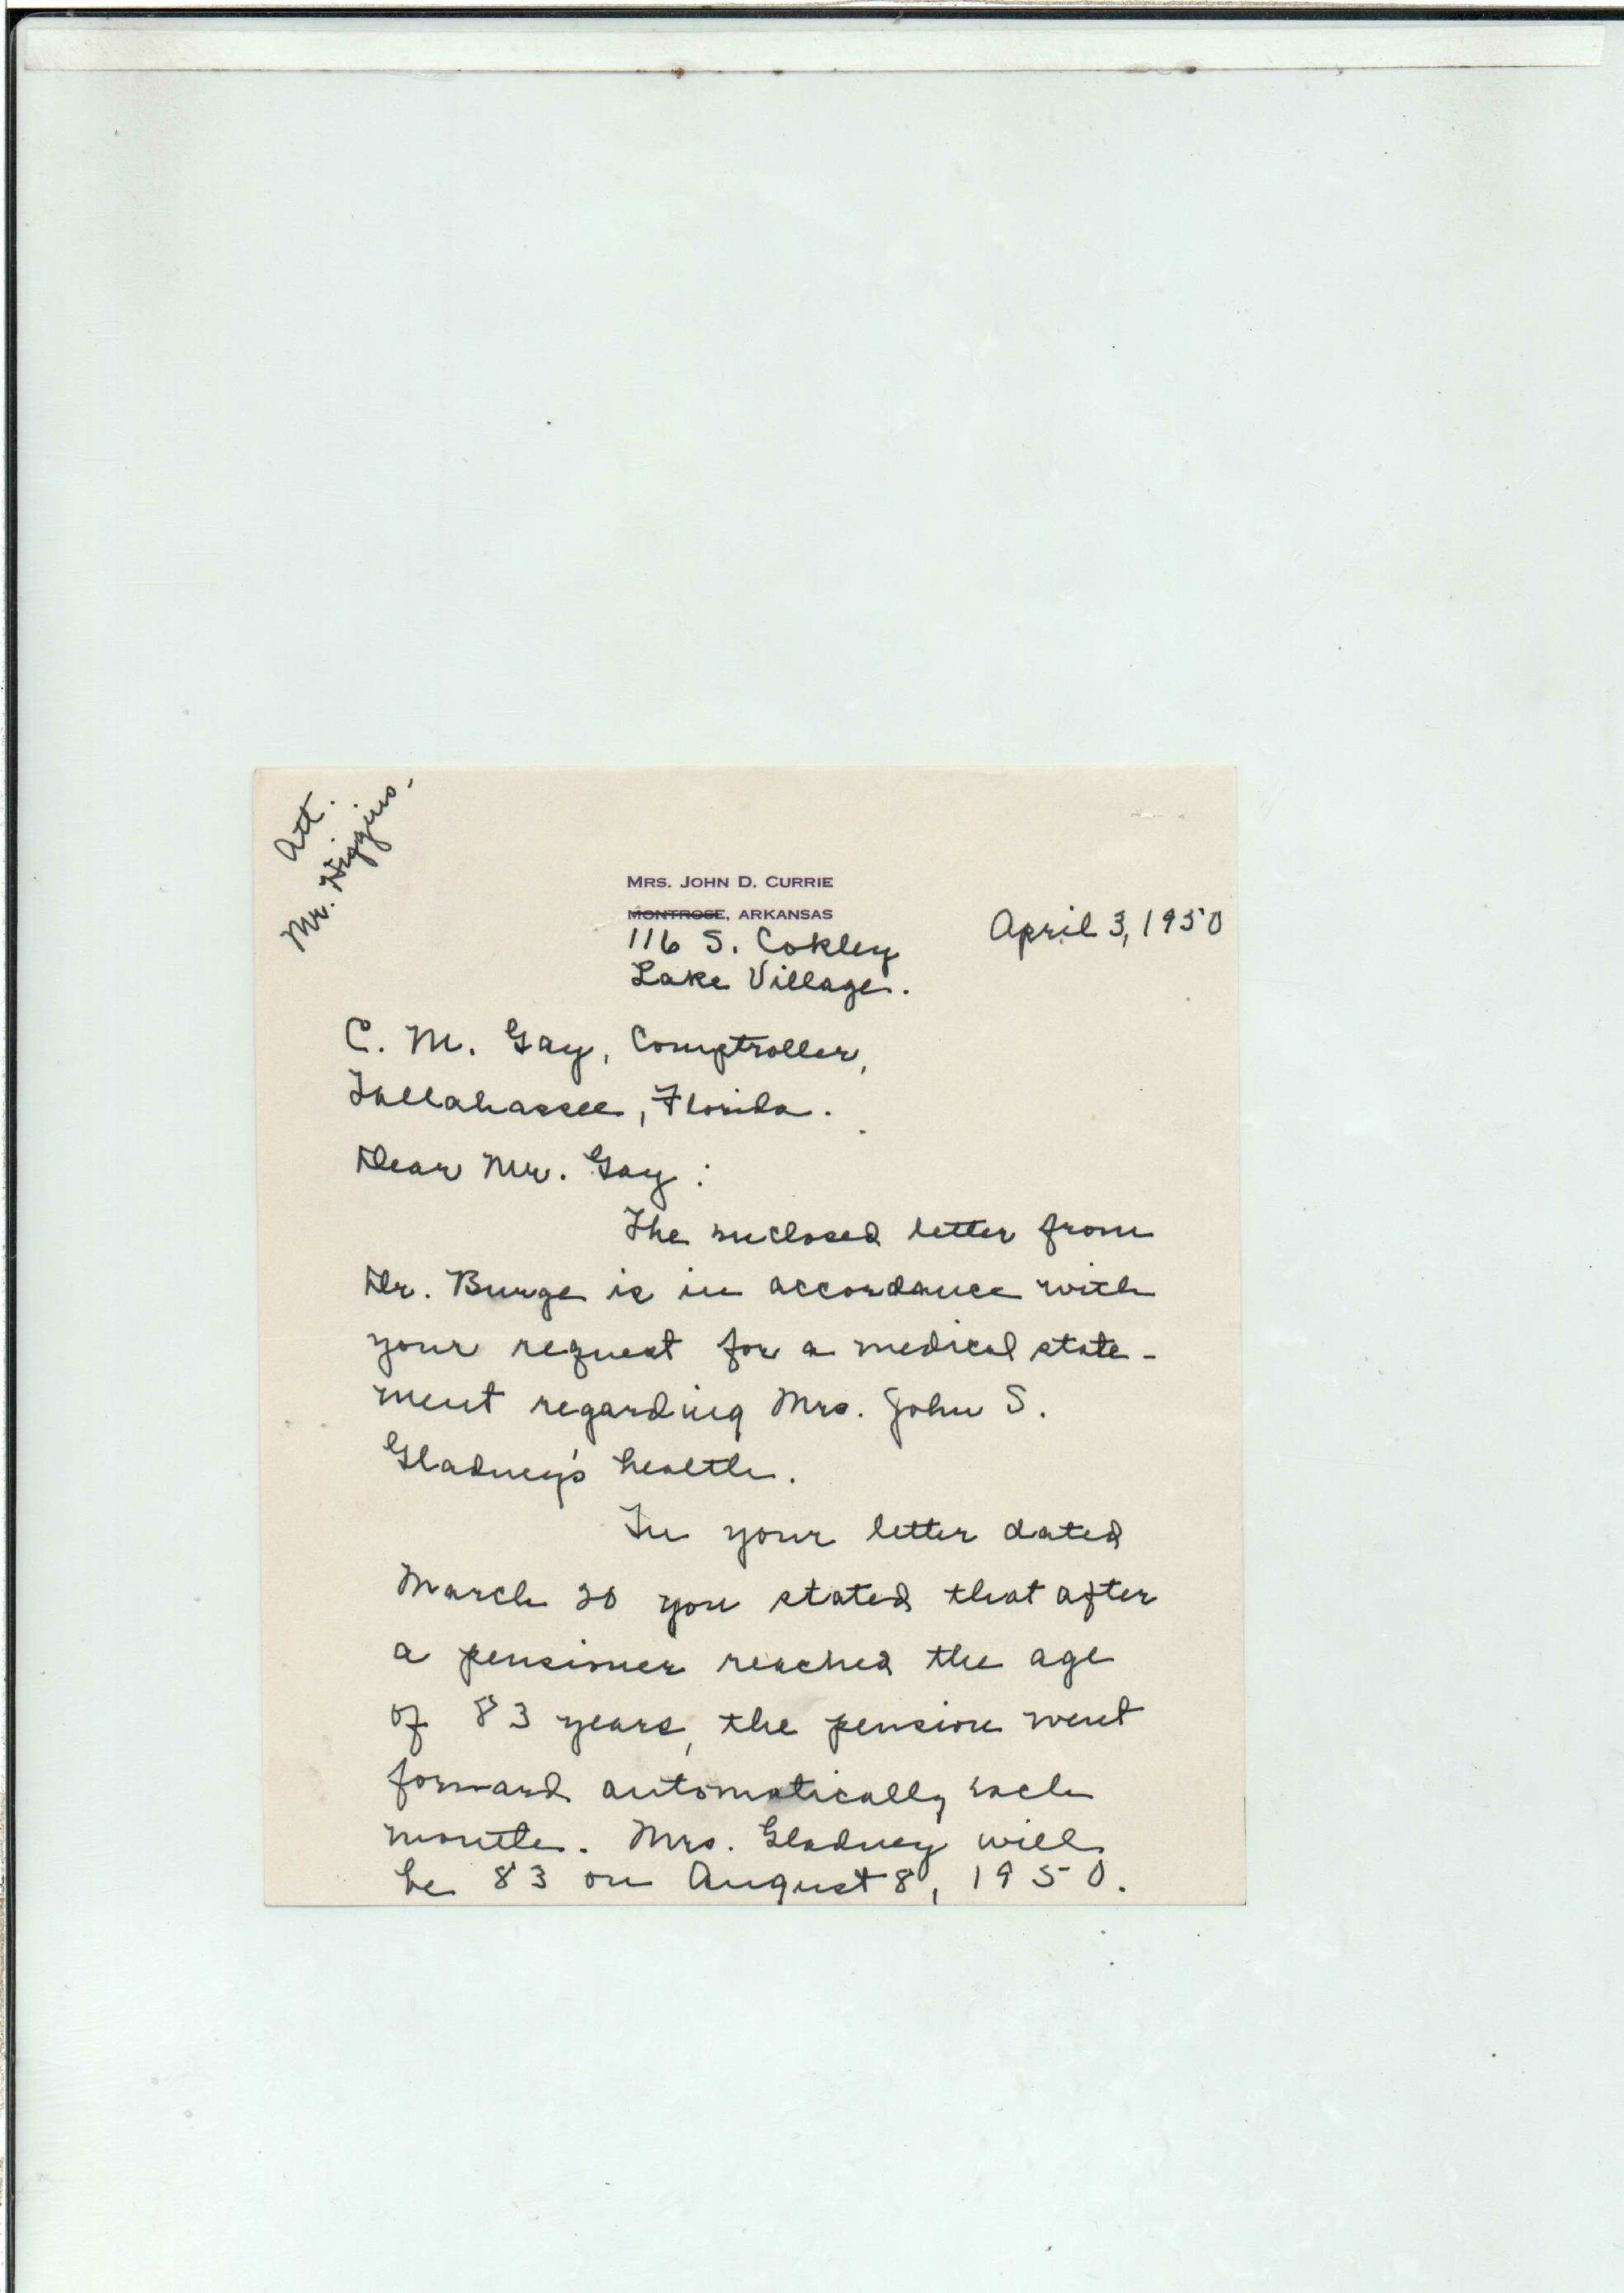 Att.
Mr. Higgins.
MRS. JOHN D. CURRIE
MONTROSE, ARKANSAS
116 S. Cokley
April 3, 1950
Lake Village.
C. M. Gay, Comptroller,
Tallahassee, Florida.
Dear Mr. Gay:
The enclosed letter from
Dr. Burge is in accordance with
your request for a medical state-
ment regarding Mrs. John S.
Gladney's health.
In your letter dated
March 20 you stated that after
a pensioner reached the age
of 83 years, the pension went
forward automatically each
month. Mrs. Gladney will
be 83 on August 8, 1950.